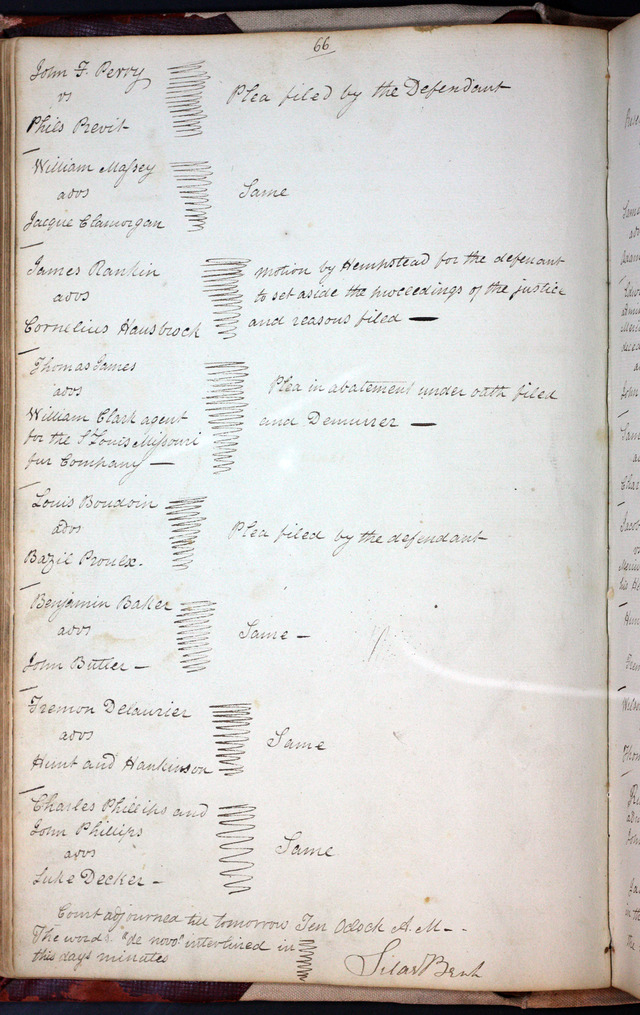 66
John F. Perry
vs
Phils Previt
Plea filed by the Defendant
William Massey
advs
Jacque Clamorgan
Same
James Rankin
advs
Cornelius Hausbrock
motion by Hempstead for the defenant
to set aside the proceedings of the justice
and reasons filed —
Thomas James
advs
William Clark agent
for the St Louis Missouri
fur Company —
Plea in abatement under oath filed
and Demurrer —
Louis Boudoin
advs
Bazil Proulx.
Plea filed by the defendant
Benjamin Baker
advs
John Butler —
Same —
Fremon Delaurier
advs
Hunt and Hankinson
Same
Charles Phillips and
John Phillips
advs
Luke Decker —
Same
Court adjourned till tomorrow Ten Oclock A.M —
The words "de novo" interlined in
this days minutes
Silas Bent